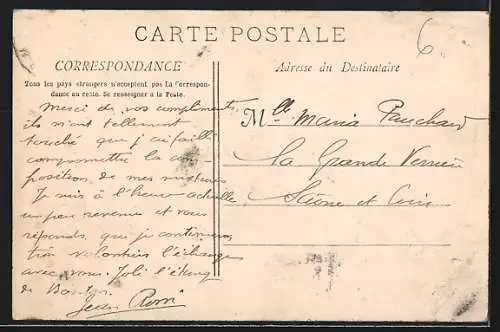 CARTE POSTALE
6
CORRESPONDANCE
Tous les pays étrangers n'acceptent pas La Correspon-
dance au recto. Se renseigner à la Poste.
Adresse du Destinataire
Merci de vos compliments,
ils m'ont tellement
touché que j'ai failli
compromettre la com-
position de mes
Je suis à l'heure actuelle
un peu revenu et vous
réponds que je continuerai
très volontiers l'échange
avec vous. Joli l'étang
de
Jean
Mlle Maria Pauchard
La Grande Verrière
Saône et Loire